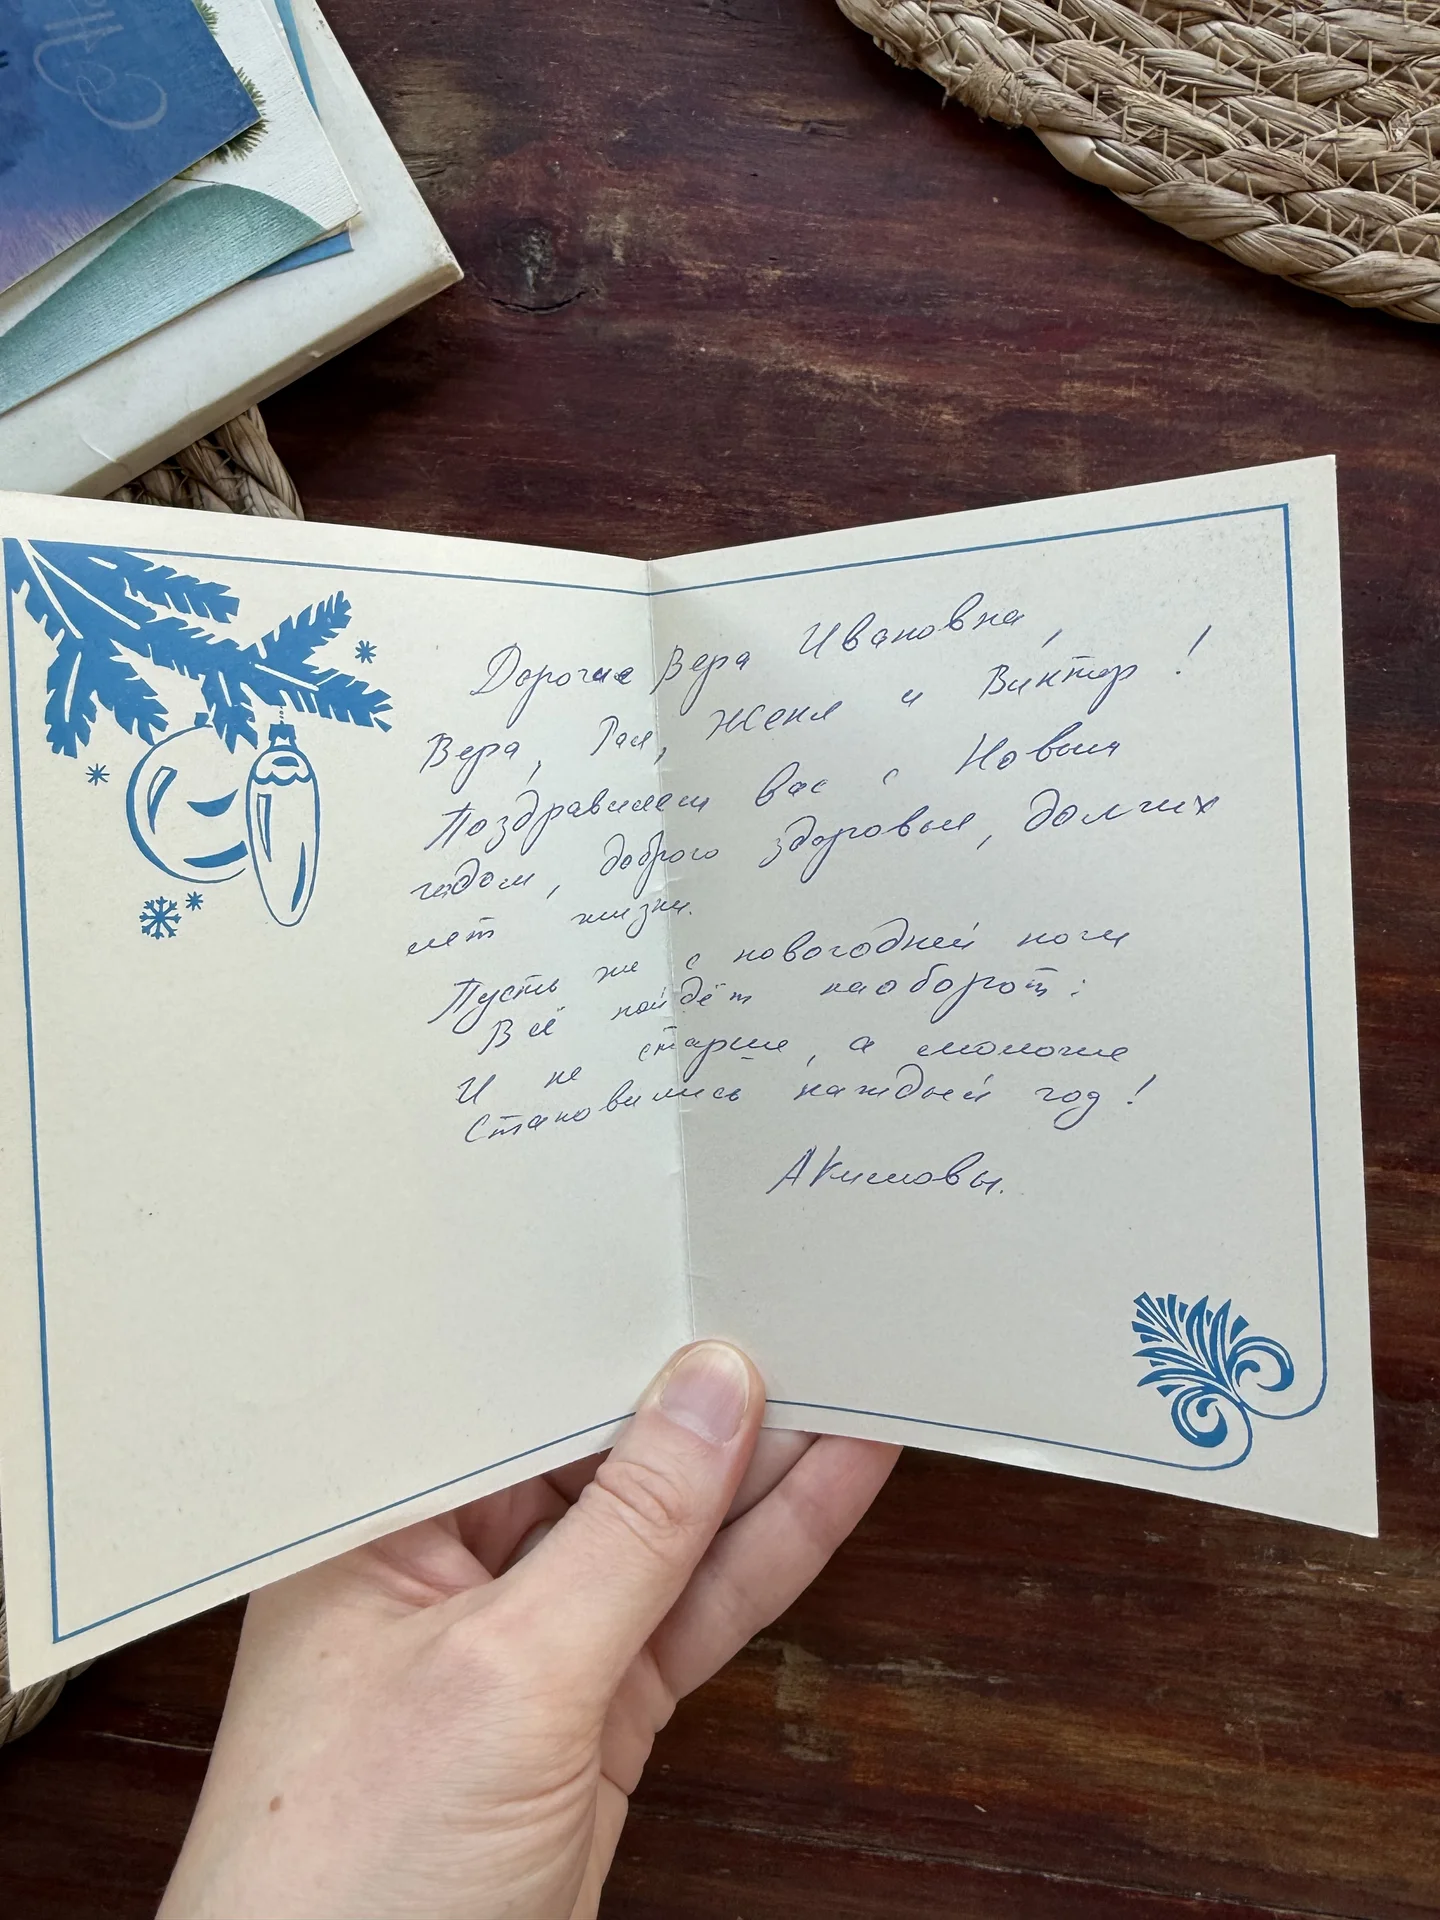 Дорогие Вера Ивановна,
Вера, Рая, Женя и Виктор!
Поздравляем вас с Новым
годом, доброго здоровья, долгих
лет жизни.
Пусть же с новогодней ночи
Всё пойдёт наоборот:
И не старше, а моложе
Становились каждый год!
Акимовы.